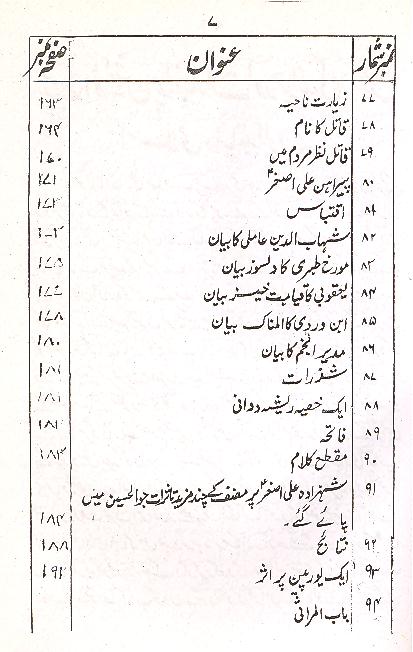 ۷
نمبر شمار عنوان صفحہ نمبر
۷۷ زیارت ناحیہ ۱۶۳
۷۸ قاتل کا نام ۱۶۴
۷۹ قاتل نظر مردم میں ۱۷۰
۸۰ پیراہن علی اصغرؑ ۱۷۱
۸۱ اقتباس ۱۷۳
۸۲ شہاب الدین عاملی کا بیان
۸۳ مورخ طبری کا دلسوز بیان ۱۷۵
۸۴ یعقوبی کا قیامت خیز بیان ۱۷۶
۸۵ ابن وردی کا المناک بیان ۱۷۸
۸۶ مدیر انجم کا بیان ۱۸۰
۸۷ شذرات ۱۸۱
۸۸ ایک خفیہ ریشہ دوانی ۱۸۱
۸۹ فاتحہ ۱۸۲
۹۰ مقطع کلام ۱۸۳
۹۱ شہزادہ علی اصغرؑ پر مصنف کے چند مزید تاثرات جو الحسین میں
پائے گئے۔ ۱۸۴
۹۲ نتائج ۱۸۸
۹۳ ایک یورپین پر اثر ۱۹۲
۹۴ باب المراثی